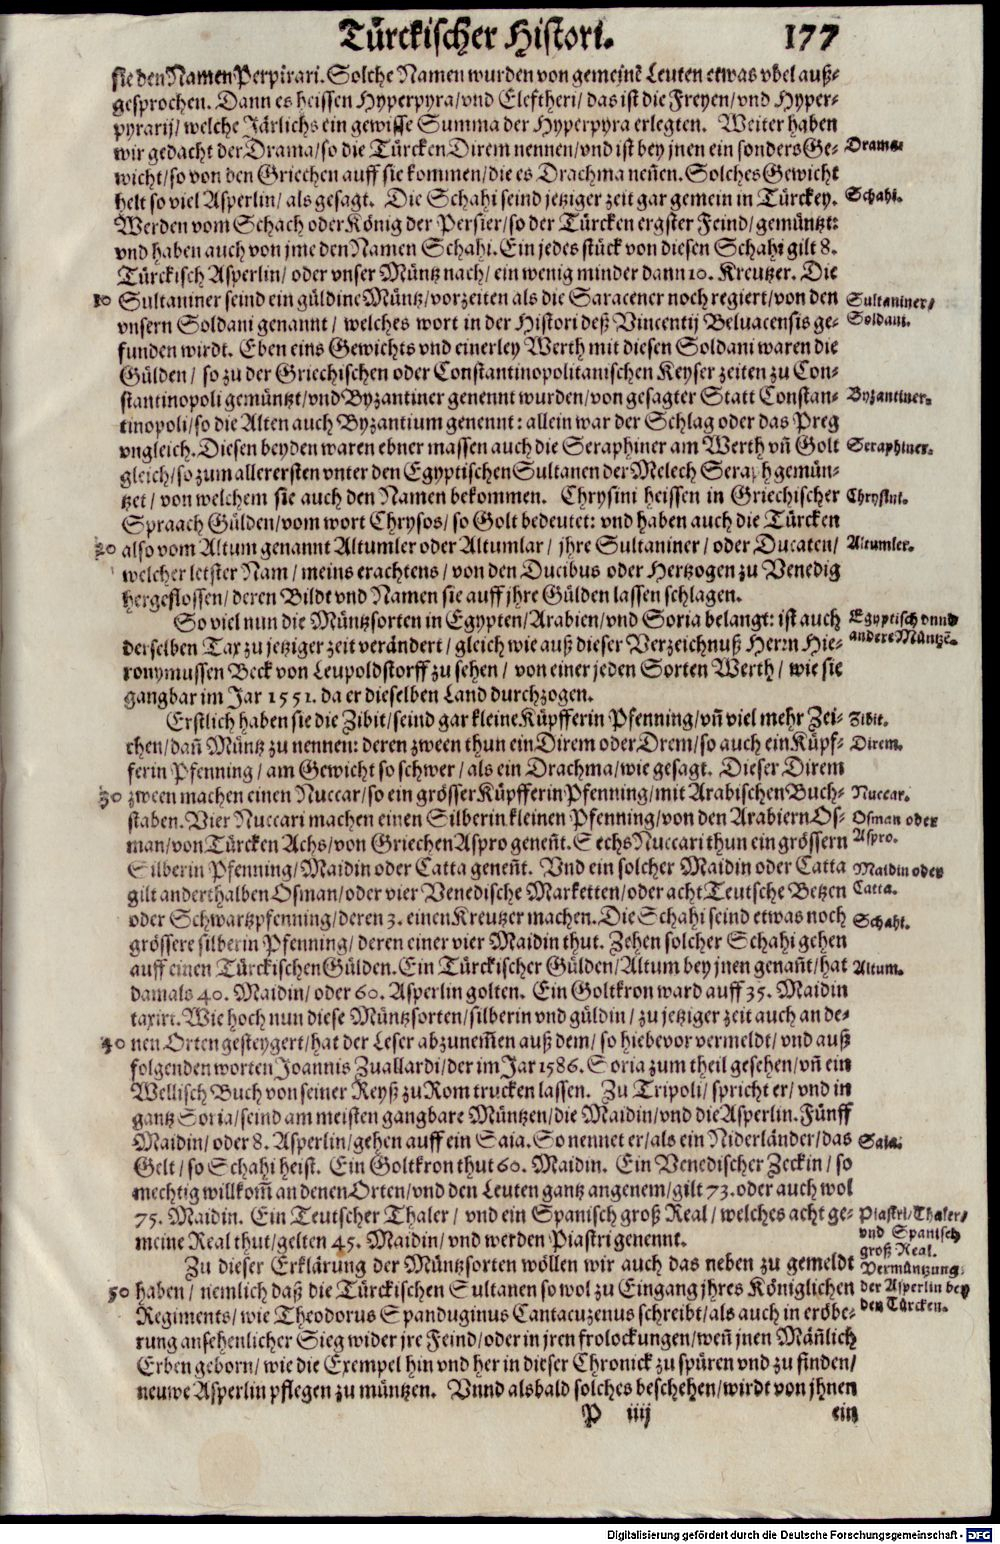 Türckischer Histori. 177
sie den Namen Perpirari. Solche Namen wurden von gemeinē Leuten etwas vbel auß-
gesprochen. Dann es heissen Hyperpyra/ vnd Eleftheri/ das ist die Freyen/ vnd Hyper-
pyrarij/ welche Järlichs ein gewisse Summa der Hyperpyra erlegten. Weiter haben
wir gedacht der Drama/ so die Türcken Direm nennen/ vnd ist bey jnen ein sonders Ge- Drama.
wicht/ so von den Griechen auff sie kommen/ die es Drachma neñen. Solches Gewicht
helt so viel Asperlin/ als gesagt. Die Schahi seind jetziger zeit gar gemein in Türckey. Schahi.
Werden vom Schach oder König der Persier/ so der Türcken ergster Feind/ gemüntzt:
vnd haben auch von jme den Namen Schahi. Ein jedes stück von diesen Schahi gilt 8.
Türckisch Asperlin/ oder vnser Müntz nach/ ein wenig minder dann 10. Kreutzer. Die
10 Sultaniner seind ein güldine Müntz/ vorzeiten als die Saracener noch regiert/ von den Sultaniner/
vnsern Soldani genannt/ welches wort in der Histori deß Vincentij Beluacensis ge- Soldani.
funden wirdt. Eben eins Gewichts vnd einerley Werth mit diesen Soldani waren die
Gülden/ so zu der Griechischen oder Constantinopolitanischen Keyser zeiten zu Con-
stantinopoli gemüntzt/ vnd Byzantiner genennt wurden/ von gesagter Statt Constan- Byzantiner.
tinopoli/ so die Alten auch Byzantium genennt: allein war der Schlag oder das Preg
vngleich. Diesen beyden waren ebner massen auch die Seraphiner am Werth vñ Golt Seraphiner.
gleich/ so zum allerersten vnter den Egyptischen Sultanen der Melech Seraph gemün-
tzet/ von welchem sie auch den Namen bekommen. Chrysini heissen in Griechischer Chrysini.
Spraach Gülden/ vom wort Chrysos/ so Golt bedeutet: vnd haben auch die Türcken
20 also vom Altum genannt Altumler oder Altumlar/ jhre Sultaniner/ oder Ducaten/ Altumler.
welcher letster Nam/ meins erachtens/ von den Ducibus oder Hertzogen zu Venedig
hergeflossen/ deren Bildt vnd Namen sie auff jhre Gülden lassen schlagen.
So viel nun die Müntzsorten in Egypten/ Arabien/ vnd Soria belangt: ist auch Egyptisch vnnd
derselben Tax zu jetziger zeit verändert/ gleich wie auß dieser Verzeichnuß Herrn Hie- andere Müntzē.
ronymussen Beck von Leupoldstorff zu sehen/ von einer jeden Sorten Werth/ wie sie
gangbar im Jar 1551. da er dieselben Land durchzogen.
Erstlich haben sie die Zibit/ seind gar kleine Küpfferin Pfenning/ vñ viel mehr Zei- Zibit.
chen/ dañ Müntz zu nennen: deren zween thun ein Direm oder Drem/ so auch ein Küpf- Direm.
ferin Pfenning/ am Gewicht so schwer/ als ein Drachma/ wie gesagt. Dieser Direm
30 zween machen einen Nuccar/ so ein grösser Küpfferin Pfenning/ mit Arabischen Buch- Nuccar.
staben. Vier Nuccari machen einen Silberin kleinen Pfenning/ von den Arabiern Os- Osman oder
man/ von Türcken Achs/ von Griechen Aspro geneñt. Sechs Nuccari thun ein grössern Aspro.
Silberin Pfenning/ Maidin oder Catta geneñt. Vnd ein solcher Maidin oder Catta Maidin oder
gilt anderthalben Osman/ oder vier Venedische Marketten/ oder acht Teutsche Betzen Catta.
oder Schwartzpfenning/ deren 3. einen Kreutzer machen. Die Schahi seind etwas noch Schahi.
grössere silberin Pfenning/ deren einer vier Maidin thut. Zehen solcher Schahi gehen
auff einen Türckischen Gülden. Ein Türckischer Gülden/ Altum bey jnen genañt/ hat Altum.
damals 40. Maidin/ oder 60. Asperlin golten. Ein Goltkron ward auff 35. Maidin
taxirt. Wie hoch nun diese Müntzsorten/ silberin vnd güldin/ zu jetziger zeit auch an de-
40 nen Orten gesteygert/ hat der Leser abzunem̃en auß dem/ so hiebevor vermeldt/ vnd auß
folgenden worten Joannis Zuallardi/ der im Jar 1586. Soria zum theil gesehen/ vñ ein
Wellisch Buch von seiner Reyß zu Rom trucken lassen. Zu Tripoli/ spricht er/ vnd in
gantz Soria/ seind am meisten gangbare Müntzen/ die Maidin/ vnd die Asperlin. Fünff
Maidin/ oder 8. Asperlin/ gehen auff ein Saia. So nennet er/ als ein Niderländer/ das Saia.
Gelt/ so Schahi heist. Ein Goltkron thut 60. Maidin. Ein Venedischer Zeckin/ so
mechtig willkom̃ an denen Orten/ vnd den Leuten gantz angenem/ gilt 73. oder auch wol
75. Maidin. Ein Teutscher Thaler/ vnd ein Spanisch groß Real/ welches acht ge- Piastri/ Thaler/
meine Real thut/ gelten 45. Maidin/ vnd werden Piastri genennt. vnd Spanisch
groß Real.
Zu dieser Erklärung der Müntzsorten wöllen wir auch das neben zu gemeldt Vermüntzung
50 haben/ nemlich daß die Türckischen Sultanen so wol zu Eingang jhres Königlichen der Asperlin bey
Regiments/ wie Theodorus Spanduginus Cantacuzenus schreibt/ als auch in eröbe- den Türcken.
rung ansehenlicher Sieg wider jre Feind/ oder in jren frolockungen/ weñ jnen Mäñlich
Erben geborn/ wie die Exempel hin vnd her in dieser Chronick zu spüren vnd zu finden/
neuwe Asperlin pflegen zu müntzen. Vnnd alsbald solches beschehen/ wirdt von jhnen
P iiij ein
Digitalisierung gefördert durch die Deutsche Forschungsgemeinschaft - DFG